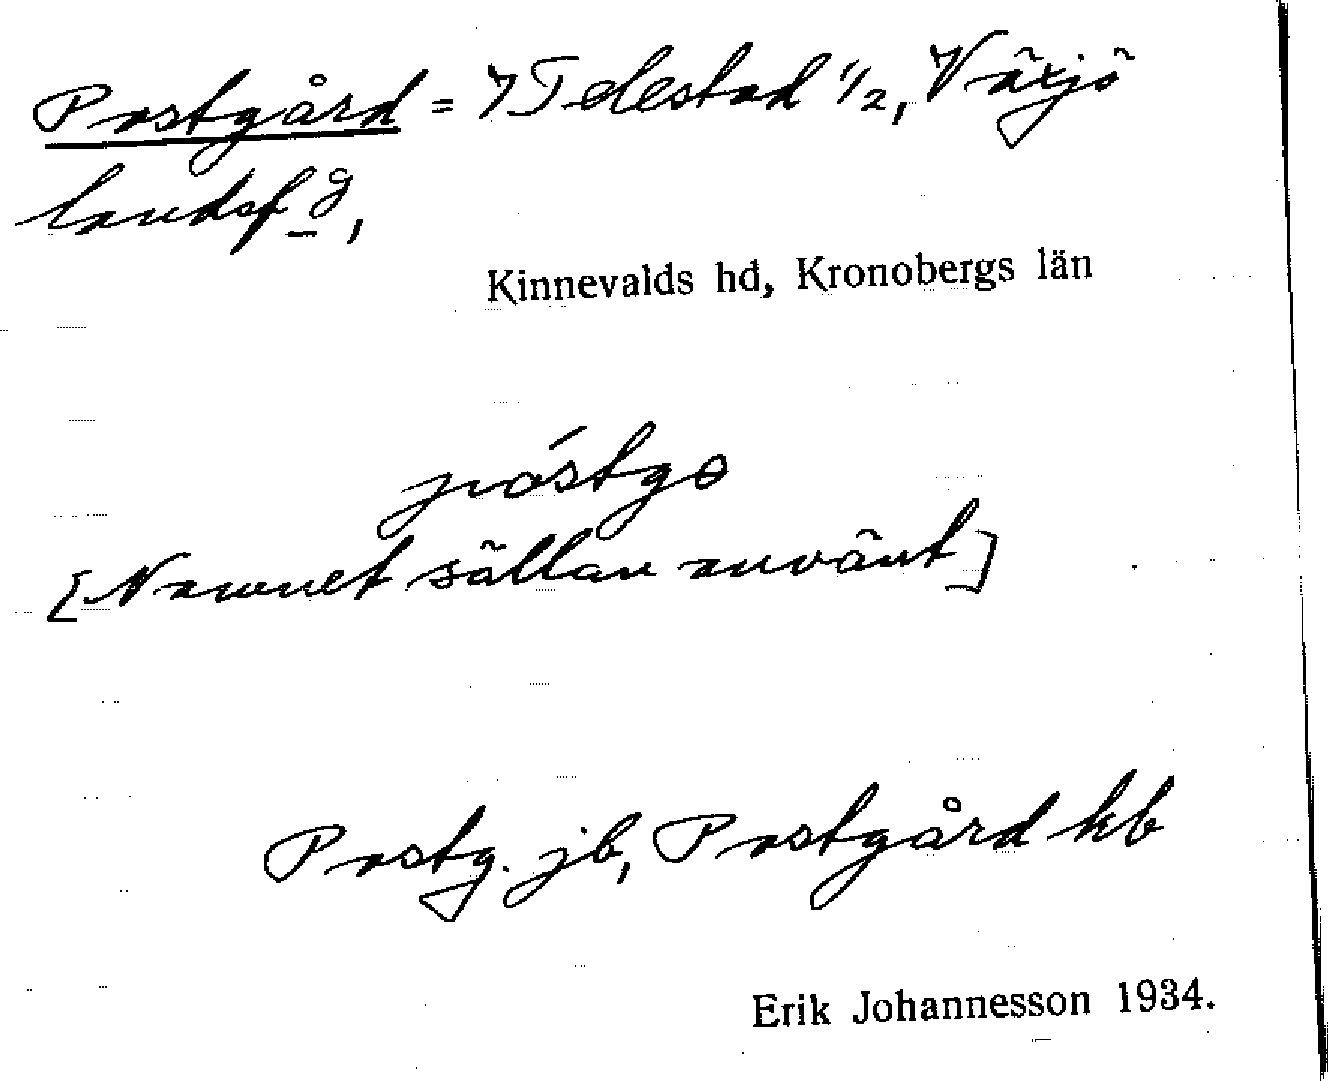 Postgård = 7 Telestad 1/2, Växjö
landsf_g,
Kinnevalds hd, Kronobergs län
póstgo
[Namnet sällan använt]
Postg. jb, Postgård kb
Erik Johannesson 1934.